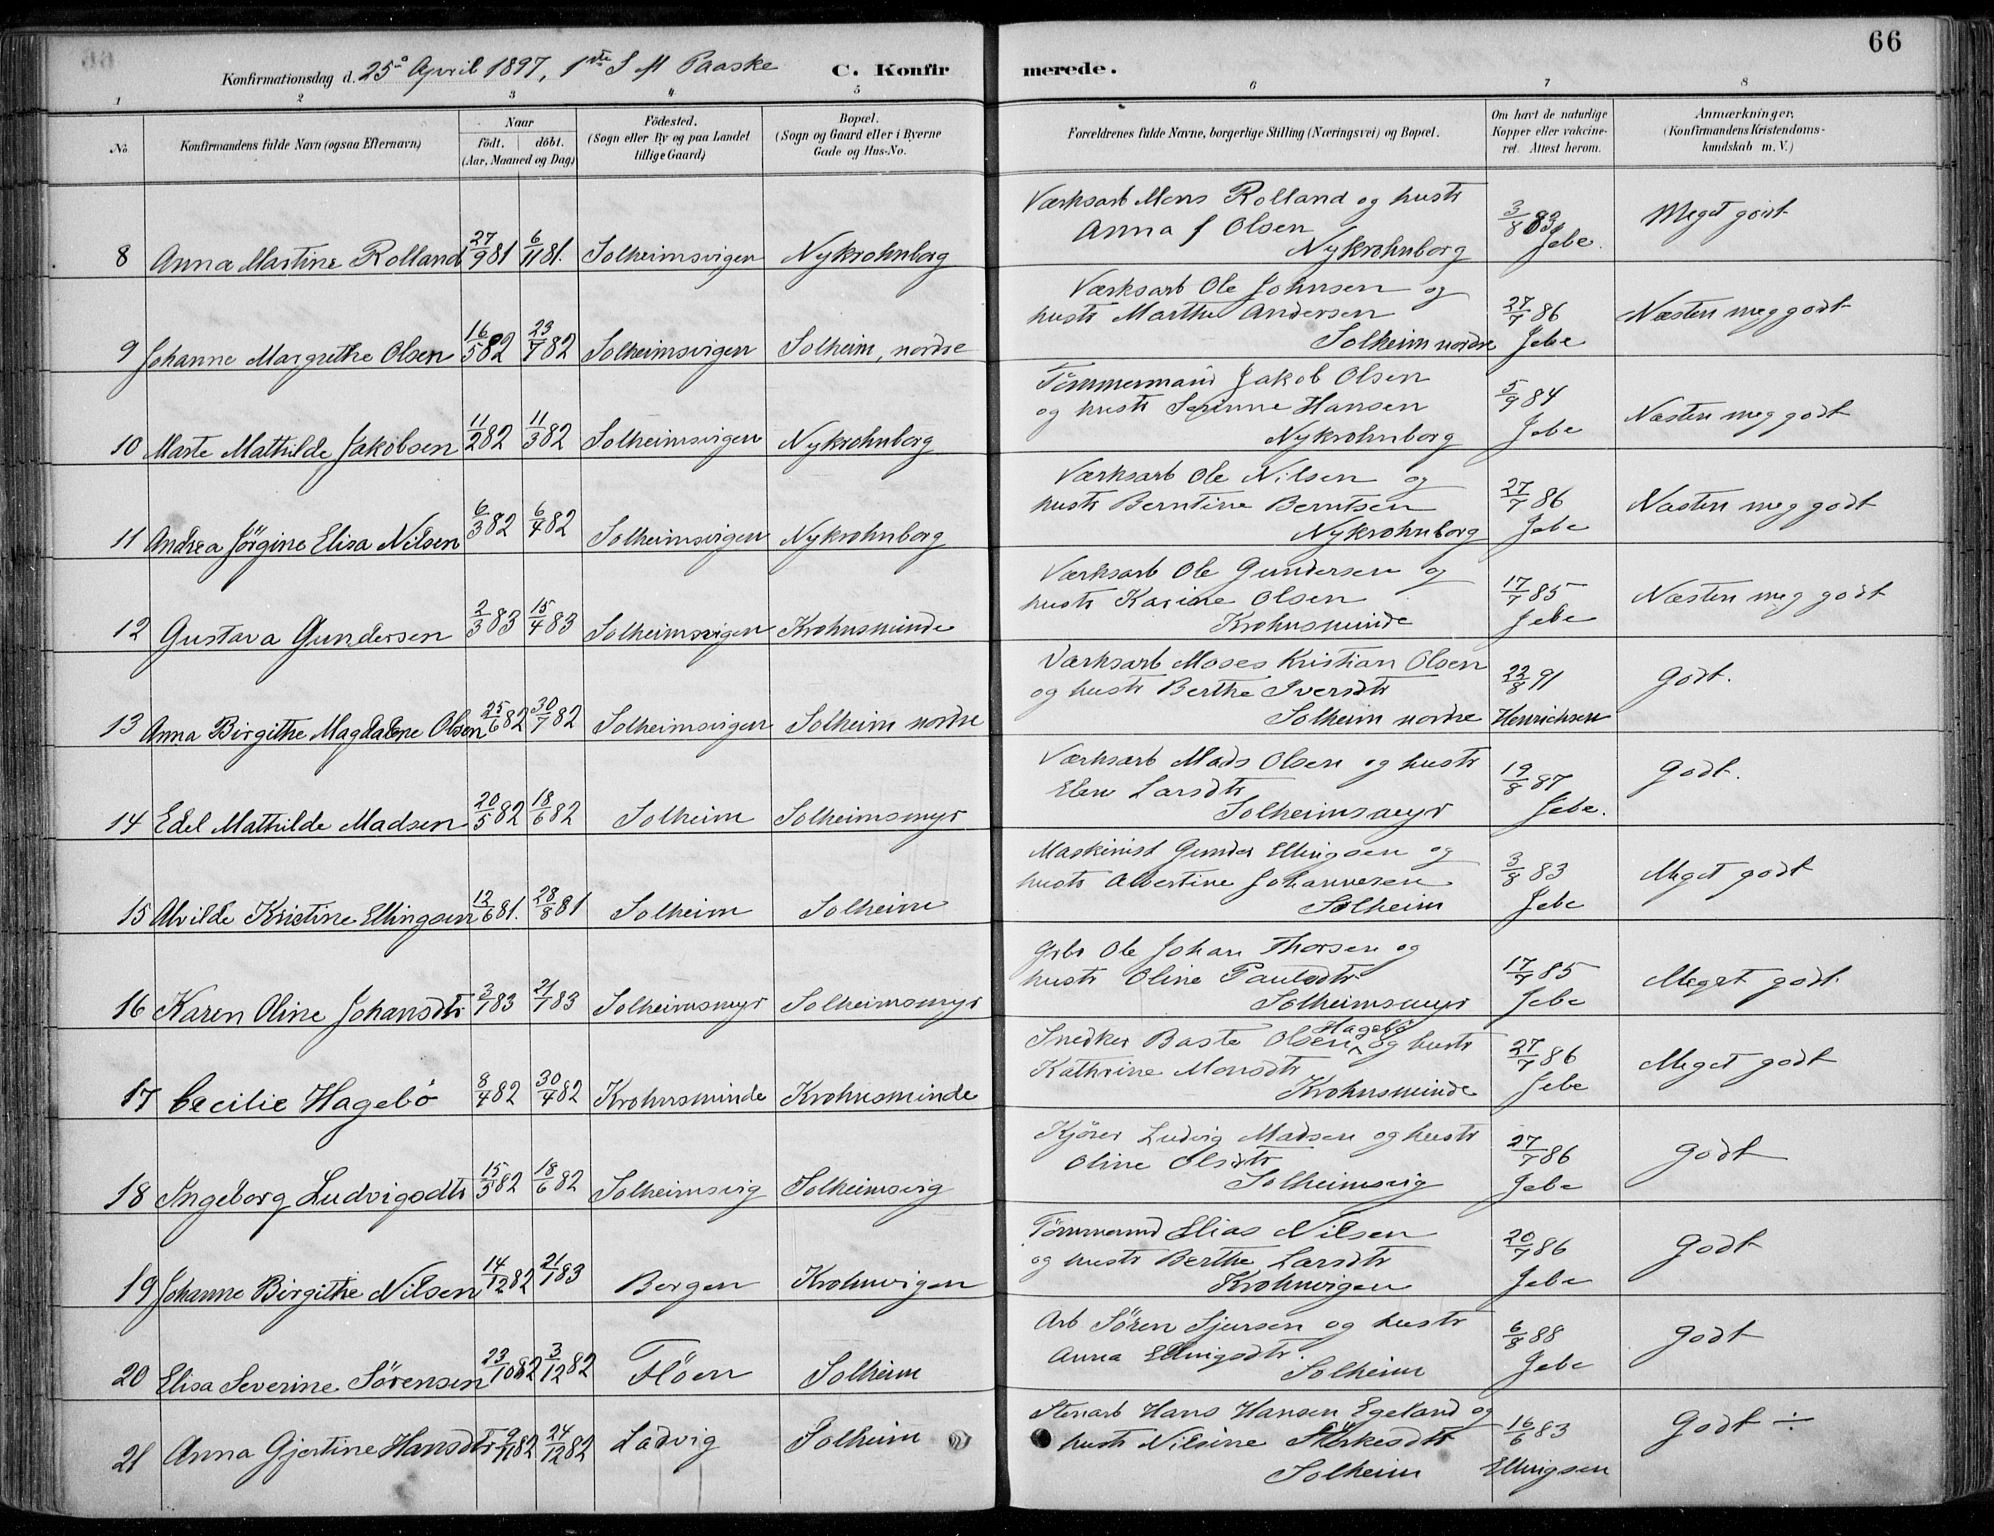 66
Konfirmationsdag d. 25de April 1897, 1ste S M Paaske C. Konfirmerede.
1 2 3 4 5 6 7 8
No. Konfirmandens fulde Navn (ogsaa Efternavn) Naar födt. döbt. (Aar, Maaned og Dag) Födested. (Sogn eller By og paa Landet tillige Gaard) Bopæl. (Sogn og Gaard eller i Byerne Gade og Hus-No. Forældrenes fulde Navne, borgerlige Stilling (Næringsvei) og Bopæl. Om havt de naturlige Kopper eller vakcineret. Attest herom. Anmærkninger, (Konfirmandens Kristendomskundskab m. V.)
8 Anna Martine Rolland 27/9 81 6/11 81. Solheimsvigen Nykrohnborg Værksarb Mons Rolland og hustr Anna f Olsen Nykrohnborg 3/8 83 Jebe. Meget godt
9 Johanne Margrethe Olsen 16/5 82 23/7 82 Solheimsvigen Solheim, nordre Værksarb Ole Johnsen og hustr Marthe Andersen Solheim nordre 27/7 86 Jebe Næsten meg godt
10 Marte Mathilde Jakobsen 11/2 82 11/3 82 Solheimsvigen Nykrohnborg Tömmermand Jakob Olsen og hustr Serinne Hansen Nykrohnborg 5/9 84 Jebe Næsten meg godt
11 Andrea Jörgine Elisa Nilsen 6/3 82 6/4 82 Solheimsvigen Nykrohnborg Værksarb Ole Nilsen og hustr Berntine Berntsen Nykrohnborg 27/7 86 Jebe Næsten meg godt
12 Gustava Gundersen 2/3 83 15/4 83 Solheimsvigen Krohnsminde Værksarb Ole Gundersen og hustr Karine Olsen Krohnsminde 17/7 85 Jebe Næsten meg godt
13 Anna Birgithe Magdalene Olsen 25/6 82 30/7 82 Solheimsvigen Solheim nordre Værksarb Moses Kristian Olsen og hustr Berthe Iversdtr Solheim nordre 22/8 91 Henrichsen Godt.
14 Edel Mathilde Madsen 20/5 82 18/6 82 Solheim Solheimsmyr Værksarb Mads Olsen og hustr Elen Larsdtr Solheimsmyr 19/8 87 Jebe. Godt.
15 Alvilde Kristine Ellingsen 12/6 81. 28/8 81 Solheim Solheim Maskinist Gunder Ellingsen og hustr Albertine Johannesen Solheim 3/8 83 Jebe Meget godt
16 Karen Oline Johansdtr 3/1 83 21/1 83 Solheimsmyr Solheimsmyr Grbr Ole Johan Thorsen og hustr Oline Paulsdtr Solheimsmyr 17/7 85 Jebe Meget godt.
17 Cecilie Hagebö 8/4 82 30/4 82 Krohnsminde Krohnsminde Snedker Baste Olsen Hagebö og hustr Kathrine Monsdtr Krohnsminde 27/7 86 Jebe Meget godt
18 Ingeborg Ludvigsdtr 15/5 82 18/6 82 Solheimsvig Solheimsvig Kjörer Ludvig Madsen og hustr Oline Olsdtr Solheimsvig 27/7 86 Jebe Godt
19 Johanne Birgithe Nilsen 14/12 82 21/1 83 Bergen Krohnvigen Tömmermd Elias Nilsen og hustr Berthe Larsdtr Krohnvigen 20/7 86 Jebe Godt
20 Elisa Severine Sörensen 23/10 82 3/12 82 Flöen Solheim Arb Sören Sjursen og hustr Anna Ellingsdtr. Solheim 6/8 88 Jebe Godt
21 Anna Gjertine Hansdtr 9/11 82 24/12 82 Ladvig Solheim Stenarb Hans Hansen Egeland og hustr Nilsine Solheim 16/6 83 Ellingsen Godt ÷